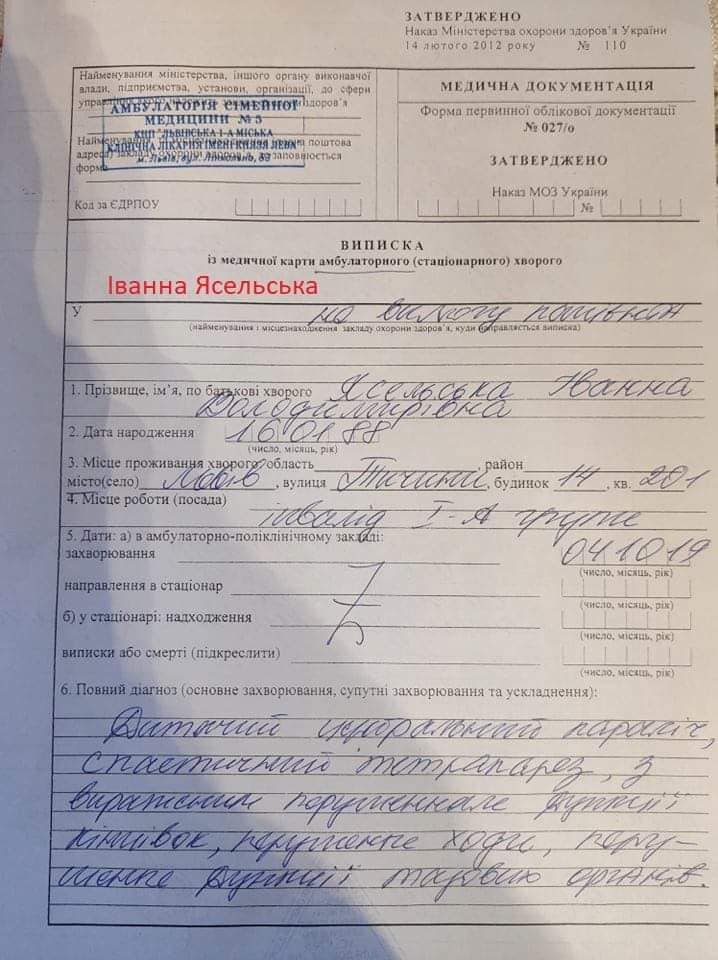 ЗАТВЕРДЖЕНО
Наказ Міністерства охорони здоров'я України
14 лютого 2012 року № 110
Найменування міністерства, іншого органу виконавчої
влади, підприємства, установи, організації, до сфери
управління якого належить заклад охорони здоров'я
АМБУЛАТОРІЯ СІМЕЙНОЇ
МЕДИЦИНИ № 5
КНП "ЛЬВІВСЬКА 1-А МІСЬКА
КЛІНІЧНА ЛІКАРНЯ ІМЕНІ КНЯЗЯ ЛЕВА"
м. Львів, вул.
Найменування
поштова
адреса) закладу охорони здоров'я, де заповнюється
форма
Код за ЄДРПОУ
МЕДИЧНА ДОКУМЕНТАЦІЯ
Форма первинної облікової документації
№ 027/о
ЗАТВЕРДЖЕНО
Наказ МОЗ України
№
ВИПИСКА
із медичної карти амбулаторного (стаціонарного) хворого
Іванна Ясельська
У на вимогу
(найменування і місцезнаходження закладу охорони здоров'я, куди направляється виписка)
1. Прізвище, ім'я, по батькові хворого Ясельська Іванна
Володимирівна
2. Дата народження 16 01 88
(число, місяць, рік)
3. Місце проживання хворого область , район
місто(село) Львів, вулиця Тичини, будинок 14, кв. 201
4. Місце роботи (посада)
інвалід І-А групи
5. Дати: а) в амбулаторно-поліклінічному закладі:
захворювання 04 10 19
(число, місяць, рік)
направлення в стаціонар
(число, місяць, рік)
б) у стаціонарі: надходження
(число, місяць, рік)
виписки або смерті (підкреслити)
(число, місяць, рік)
6. Повний діагноз (основне захворювання, супутні захворювання та ускладнення):
Дитячий церебральний параліч,
спастичний тетрапарез, з
вираженим порушенням функції
кінцівок, порушення ходи, пору-
шення функції тазових органів.